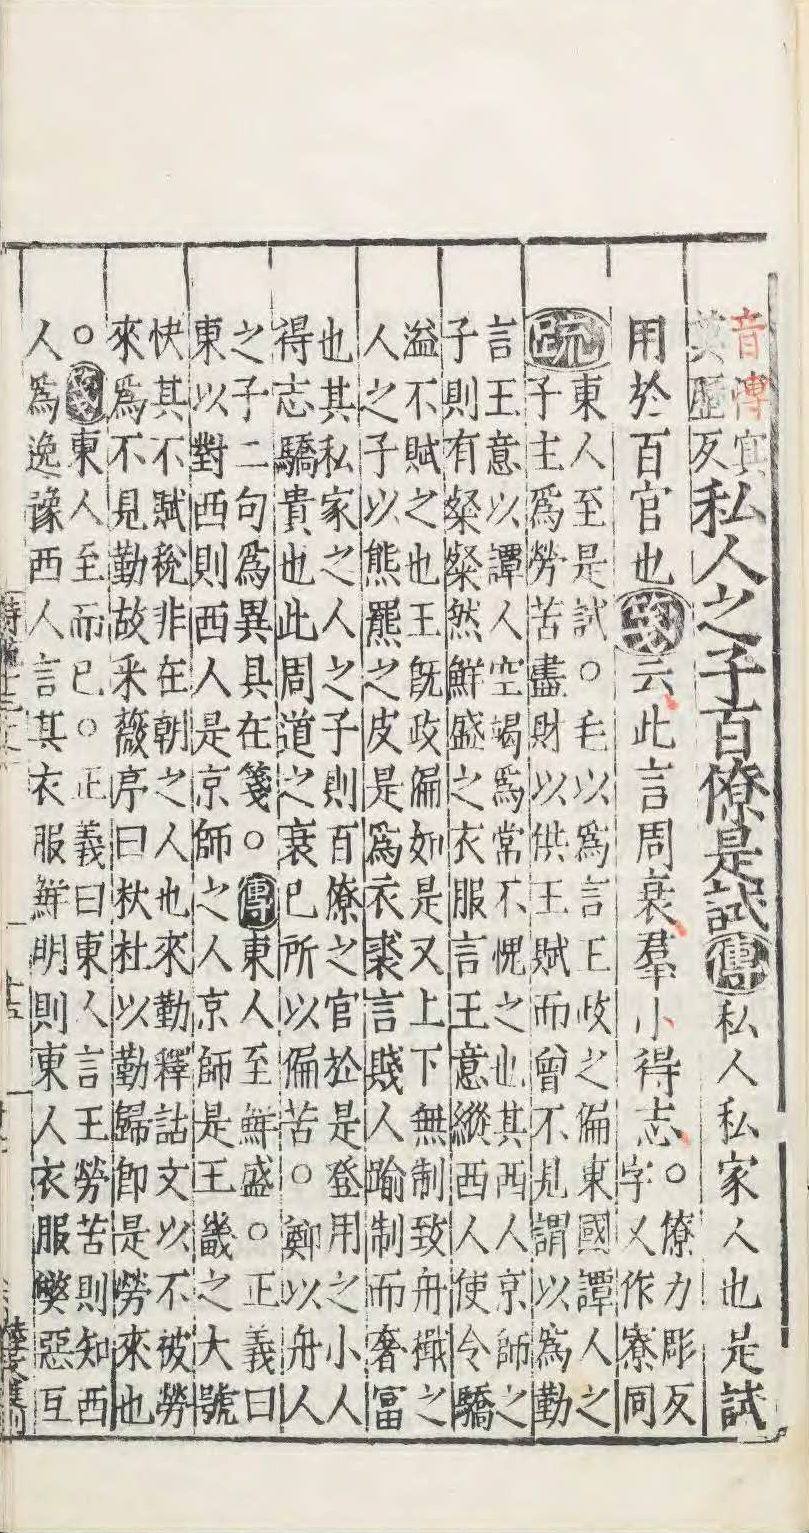 音博寘
莫歷反私人之子百僚是試傳私人私家人也是試
用於百官也箋云此言周衰羣小得志○僚力彫反
字又作寮同
疏東人至是試○毛以爲言王政之偏東國譚人之
子主爲勞苦盡財以供王賦而曾不見謂以爲勤
言王意以譚人空竭爲常不愧之也其西人京師之
子則有粲粲然鮮盛之衣服言王意縱西人使令驕
溢不賦之也王旣政偏如是又上下無制致舟檝之
人之子以熊羆之皮是爲衣裘言賤人踰制而奢富
也其私家之人之子則百僚之官於是登用之小人
得志驕貴也此周道之衰已所以偏苦○鄭以舟人
之子二句爲異具在箋○傳東人至鮮盛○正義曰
東以對西則西人是京師之人京師是王畿之大號
快其不賦稅非在朝之人也來勤釋詁文以不被勞
來爲不見勤故采薇序曰杕杜以勤歸即是勞來也
○箋東人至而已○正義曰東人言王勞苦則知西
人爲逸豫西人言其衣服鮮明則東人衣服弊惡互